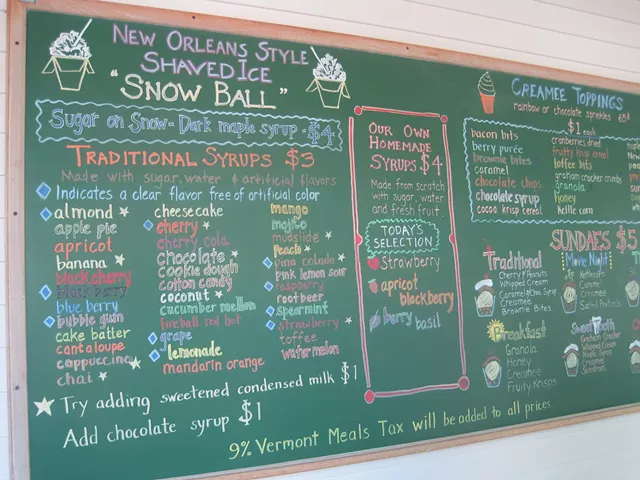 NEW ORLEANS STYLE
SHAVED ICE
"SNOW BALL"
Sugar on Snow - Dark maple syrup - $4
TRADITIONAL SYRUPS $3
Made with sugar, water & artificial flavors
Indicates a clear flavor free of artificial color
almond
apple pie
apricot
banana
black cherry
blue berry
bubble gum
cake batter
cantaloupe
cappuccino
chai
cheesecake
cherry
cherry cola
chocolate
cookie dough
cotton candy
coconut
cucumber mellon
fireball red hot
grape
lemonade
mandarin orange
mango
mojito
mudslide
peach
pina colada
pink lemon sour
raspberry
root beer
spearmint
strawberry
toffee
water melon
Try adding sweetened condensed milk $1
Add chocolate syrup $1
9% Vermont Meals Tax will be added to all prices
OUR OWN
HOMEMADE
SYRUPS $4
Made from scratch
with sugar, water
and fresh fruit
TODAY'S
SELECTION
Strawberry
apricot
blackberry
berry
basil
CREAMEE TOPPINGS
rainbow or chocolate sprinkles 65¢
$1 each
bacon bits
berry purée
brownie bites
caramel
chocolate chips
chocolate syrup
cocoa krisp cereal
cranberries dried
fruity krisp cereal
toffee bits
graham cracker crumbs
granola
honey
SUNDAES $5
Traditional
Cherry & Peanuts
Whipped Cream
Caramel or Choc Syrup
Creamee
Brownie Bites
Movie Night
Kettlecorn
Caramel
Creamee
Salted Pretzels
Breakfast
Granola
Honey
Creamee
Fruity Krisps
Sweet Tooth
Graham Cracker
Whipped Cream
Maple Syrup
Creamee